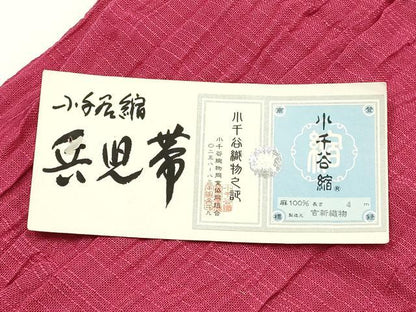 小千谷縮
兵児帯
小千谷織物之証
小千谷織物同業協同組合
登録
商標
小千谷縮®
麻100% 長さ 4 m
製造元 吉新織物